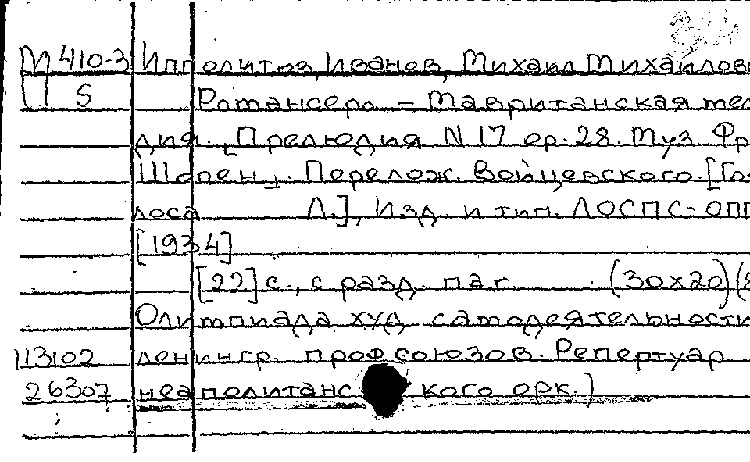 М 410-3 Ипполитов, Иванов, Михаил Михайлов
П 5 Романсеро – Мавританская мел
дия. [Прелюдия N 17 ор. 28. Муз Фр
Шопен]. Перелож. Войцевского. [Го
лоса Л.], Изд. и тип. ЛОСПС-ОПП
[1934]
[22] с., с разд. паг. (30х20)
Олимпиада худ самодеятельности
113102 ленингр. профсоюзов. Репертуар
26307 неаполитанс кого орк.)